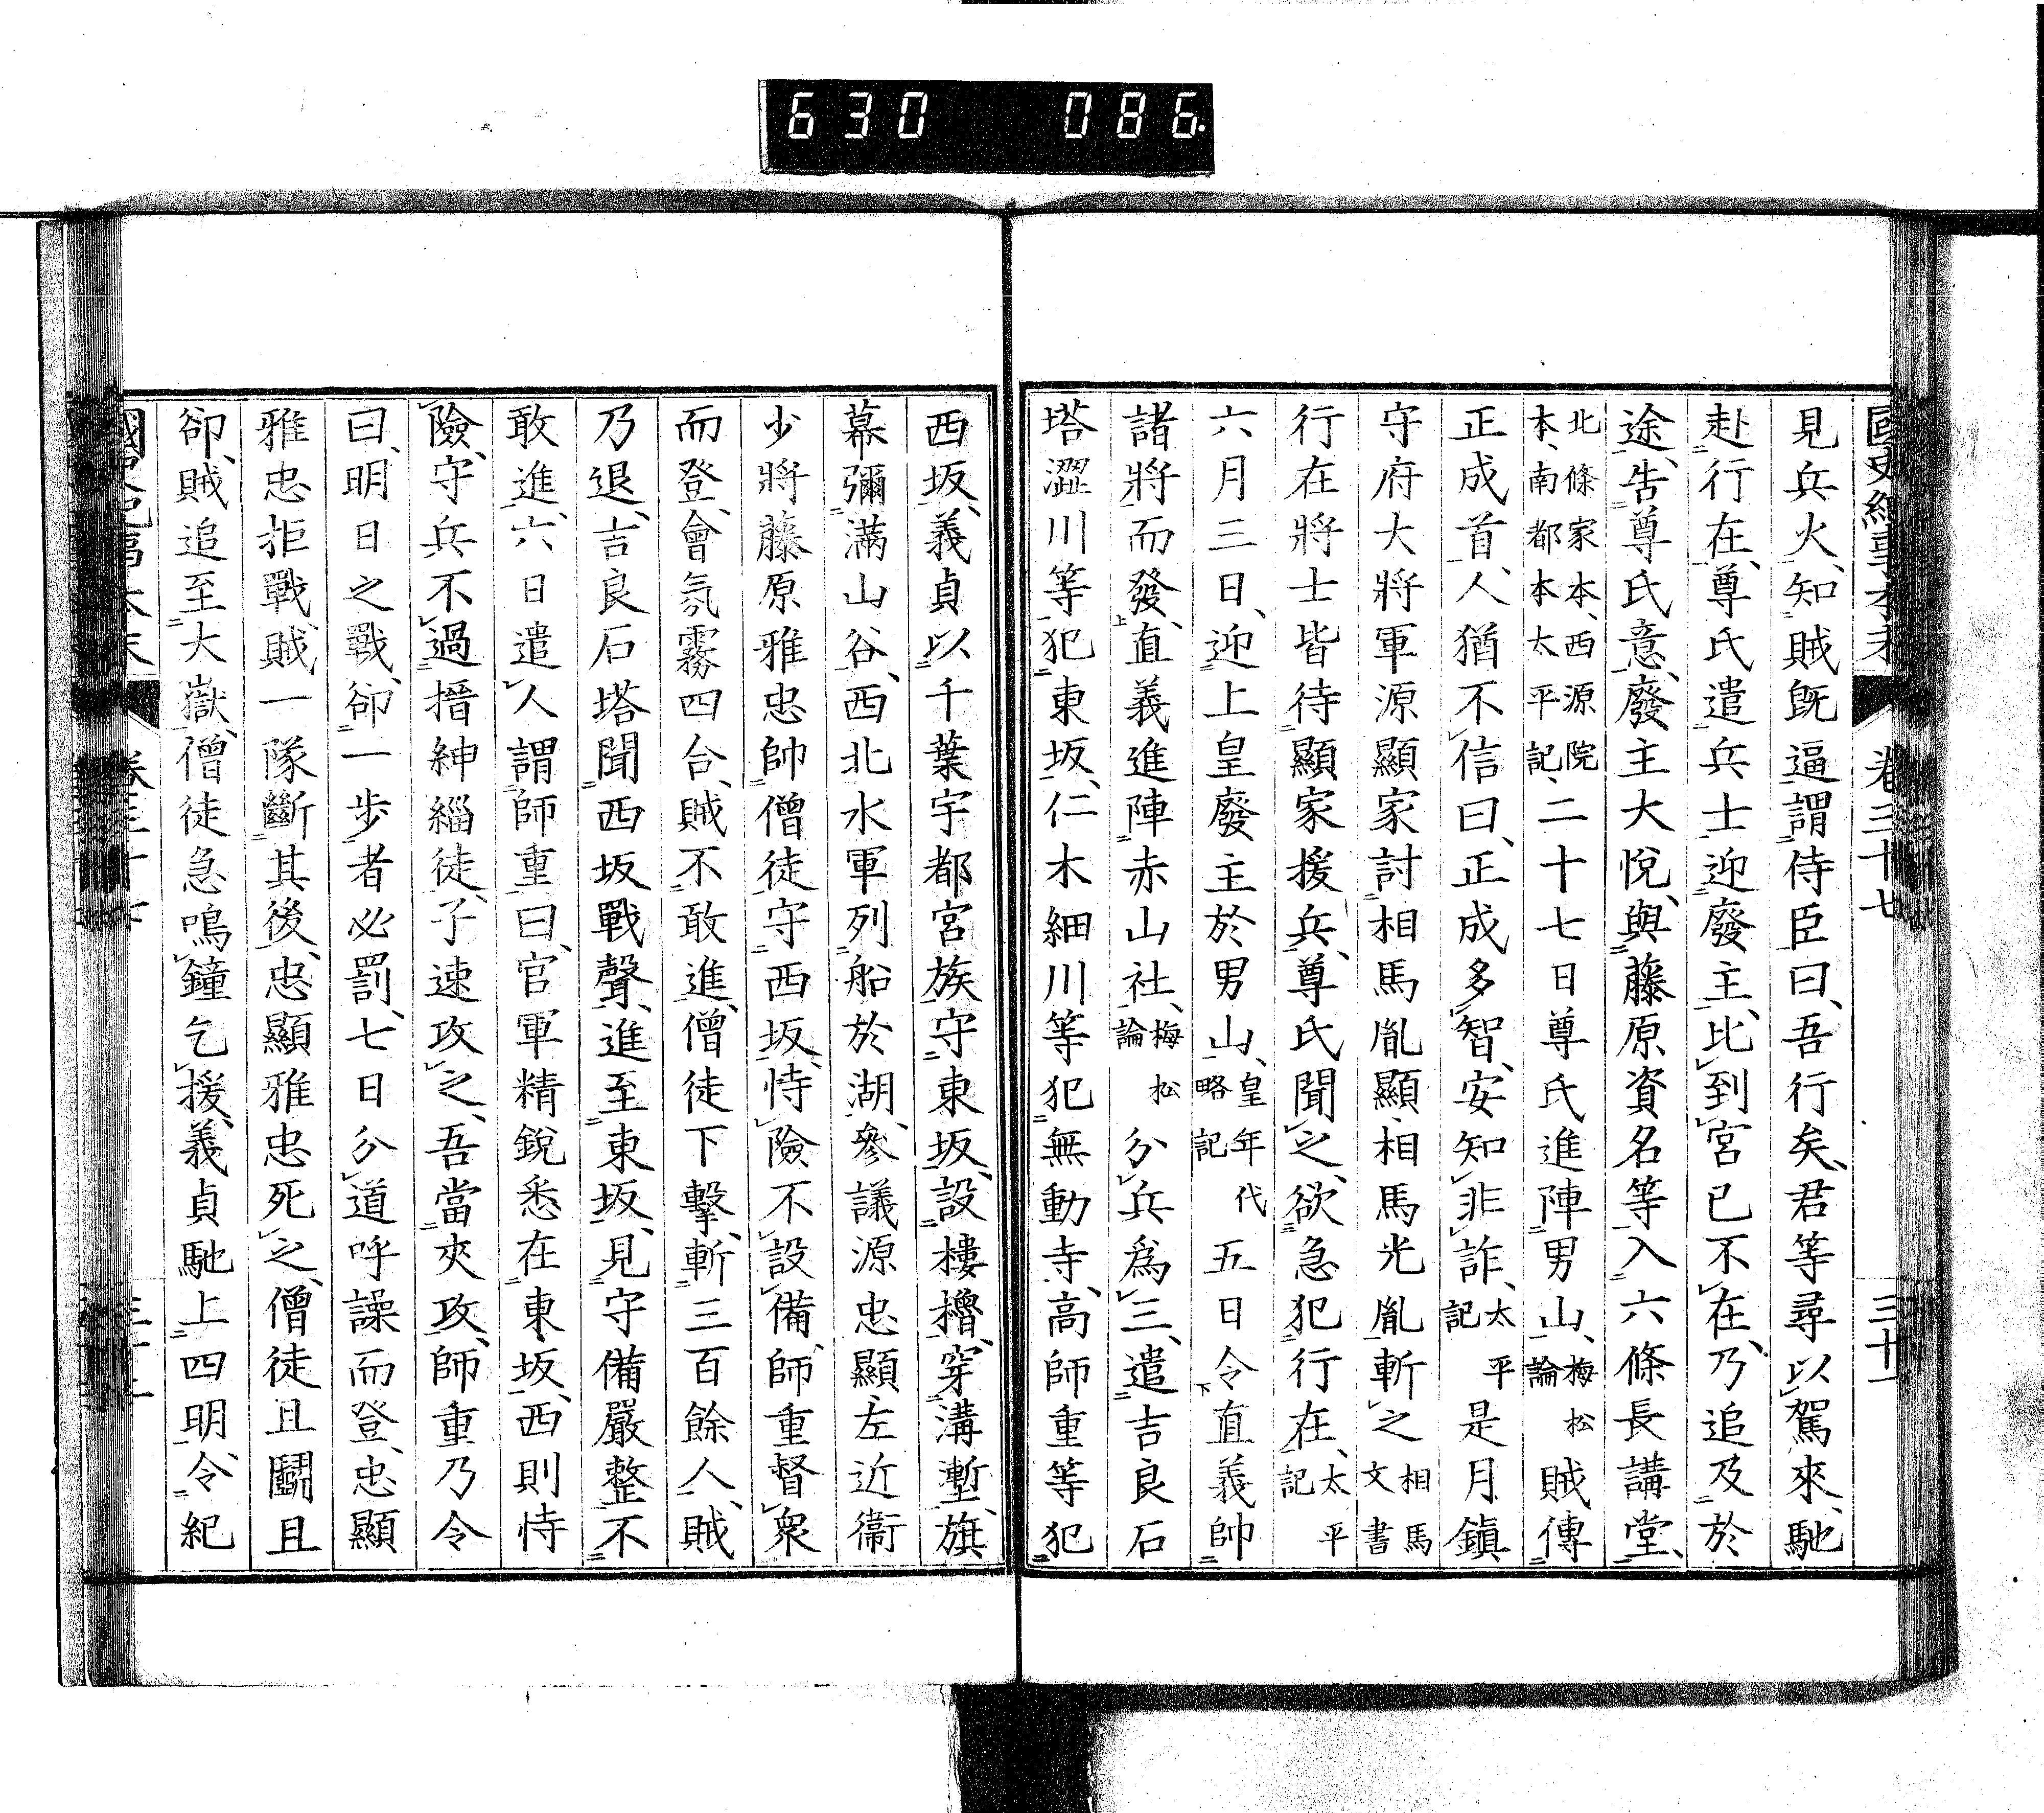 630 086
見兵火、知賊既逼謂侍臣曰、吾行矣、君等尋以駕來、馳
赴行在、尊氏遣兵士迎廢主、比到宮已不在、乃追及於
途、告尊氏意、廢主大悅、與藤原資名等入六條長講堂、
北條家本、西源院本、南都本太平記、二十七日尊氏進陣男山、梅松論賊傳
正成首、人猶不信曰、正成多智、安知非詐、太平記是月鎮
守府大將軍源顯家討相馬胤顯、相馬光胤斬之相馬文書
行在將士皆待顯家援兵、尊氏聞之、欲急犯行在、太平記
六月三日、迎上皇廢主於男山、皇年代略記五日令直義帥
諸將而發、直義進陣赤山社、梅松論分兵爲三、遣吉良石
塔澀川等犯東坂、仁木細川等犯無動寺、高師重等犯
西坂、義貞以千葉宇都宮族守東坂、設樓櫓、穿溝塹、旗
幕彌滿山谷、西北水軍列船於湖、參議源忠顯左近衞
少將藤原雅忠帥僧徒守西坂、恃險不設備、師重督衆
而登、會氛霧四合、賊不敢進、僧徒下擊、斬三百餘人、賊
乃退、吉良石塔聞西坂戰聲、進至東坂、見守備嚴整不
敢進、六日遣人謂師重曰、官軍精銳悉在東坂、西則恃
險、守兵不過搢紳緇徒、子速攻之、吾當夾攻、師重乃令
曰、明日之戰、卻一步者必罰、七日分道呼譟而登、忠顯
雅忠拒戰、賊一隊斷其後、忠顯雅忠死之、僧徒且鬭且
卻、賊追至大嶽、僧徒急鳴鐘乞援、義貞馳上四明、令紀